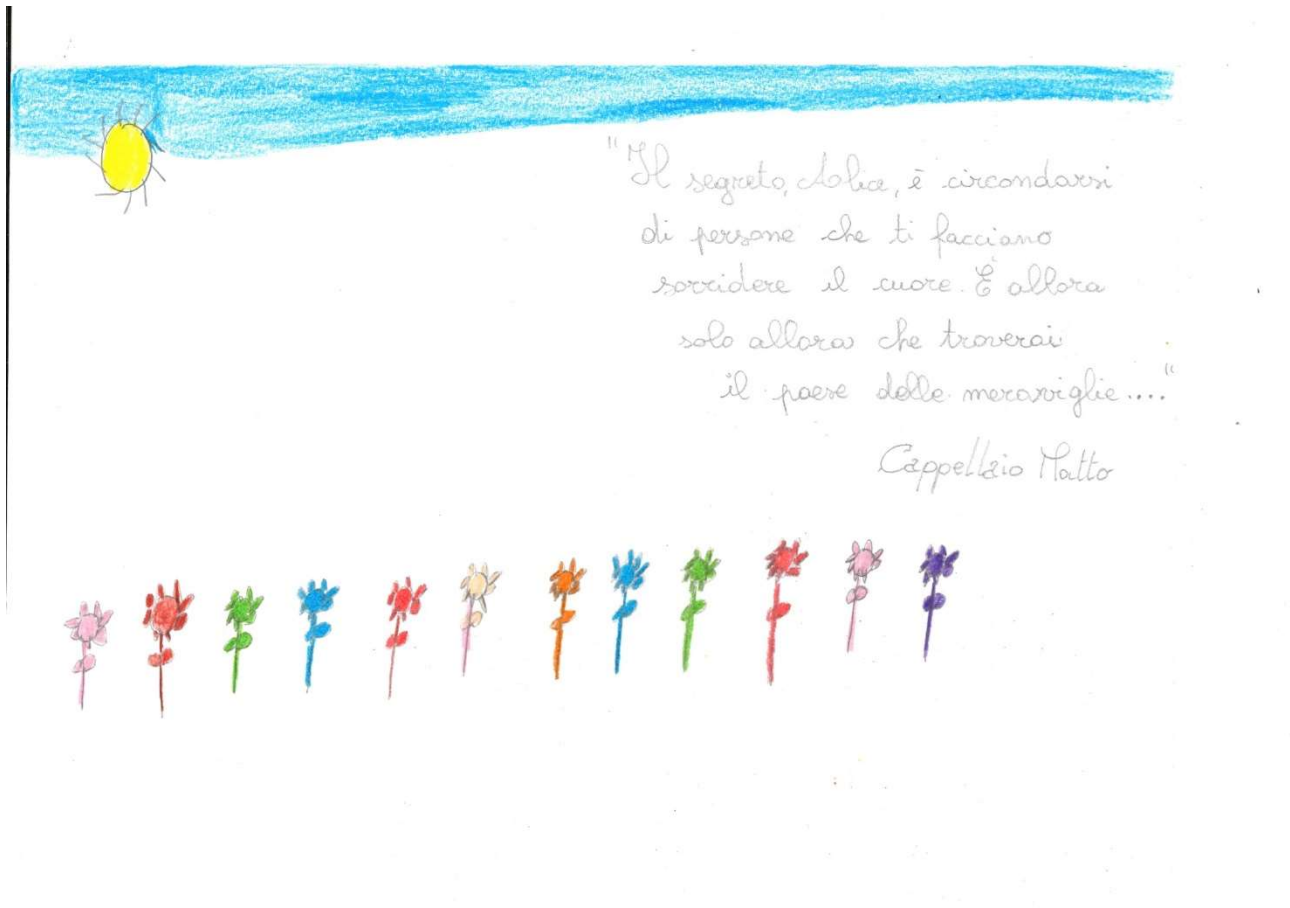 "Il segreto, Alice, è circondarsi
di persone che ti facciano
sorridere il cuore. È allora
solo allora che troverai
il paese delle meraviglie...."
Cappellaio Matto